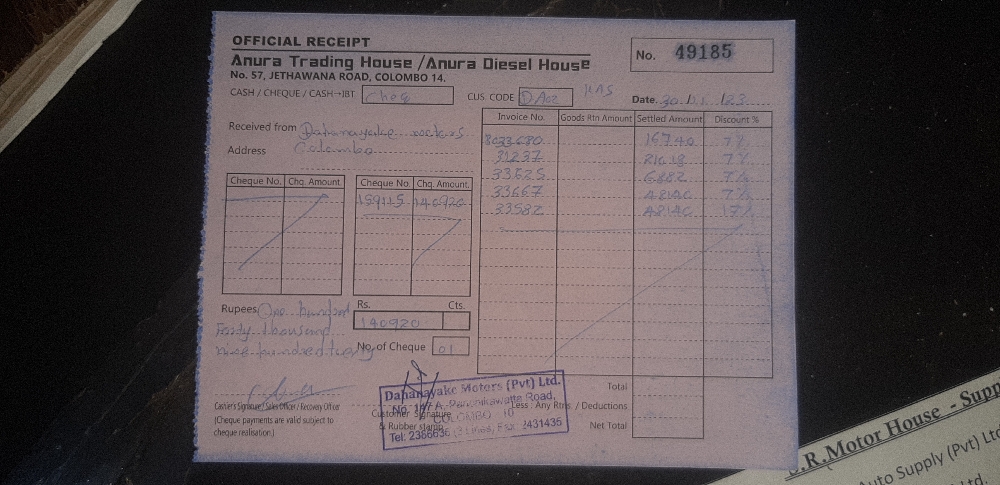 OFFICIAL RECEIPT
Anura Trading House / Anura Diesel House
No. 57, JETHAWANA ROAD, COLOMBO 14.
No. 49185
CASH / CHEQUE / CASH→IBT Cheq
CUS. CODE
Date. 30 /23
Received from Dahanayake
Address Colombo
Invoice No. Goods Rtn Amount Settled Amount Discount %
8033680 16740 7%
31237 7%
33525 6882 7%
33667 7%
33582
Cheque No. Chq. Amount
Cheque No. Chq. Amount.
159115 140920
Rupees One hundred
Forty thousand
nine hundred twenty
Rs. Cts.
140920
No. of Cheque 01
Cashier's Signature / Sales Officer / Recovery Officer
(Cheque payments are valid subject to
cheque realisation.)
Customer Signature
& Rubber stamp
Dahanayake Motors (Pvt) Ltd.
No. 147A, Panchikawatte Road,
COLOMBO 10
Total
Less : Any Rtns / Deductions
Net Total
.R.Motor House - Supp
Auto Supply (Pvt) Ltd
Ltd.